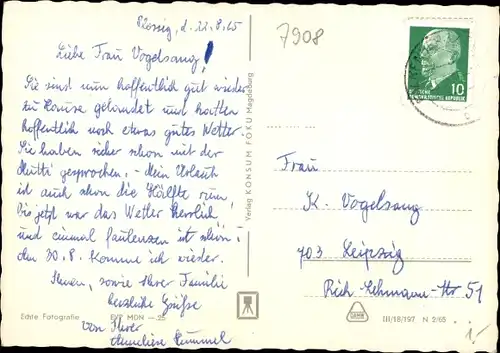 Rossig, d. 22.8.65
Liebe Frau Vogelsang!
Sie sind nun hoffentlich gut wieder
zu Hause gelandet und hatten
hoffentlich noch etwas gutes Wetter.
Sie haben sicher schon mit der
Mutti gesprochen. - Mein Urlaub
ist auch schon die Hälfte rum,
Bis jetzt war das Wetter herrlich
und einmal faulenzen ist schön.
Am 30.8. komme ich wieder.
Ihnen, sowie Ihrer Familie
herzliche Grüße
von Ihrer
Anneliese Rummel
Echte Fotografie EVP MDN -.25
Verlag KONSUM FOKU Magdeburg
7908
10
DEUTSCHE
DEMOKRATISCHE REPUBLIK
Frau
K. Vogelsang
703 Leipzig
Rich-Lehmann-Str 51
III/18/197 N 2/65
1/-